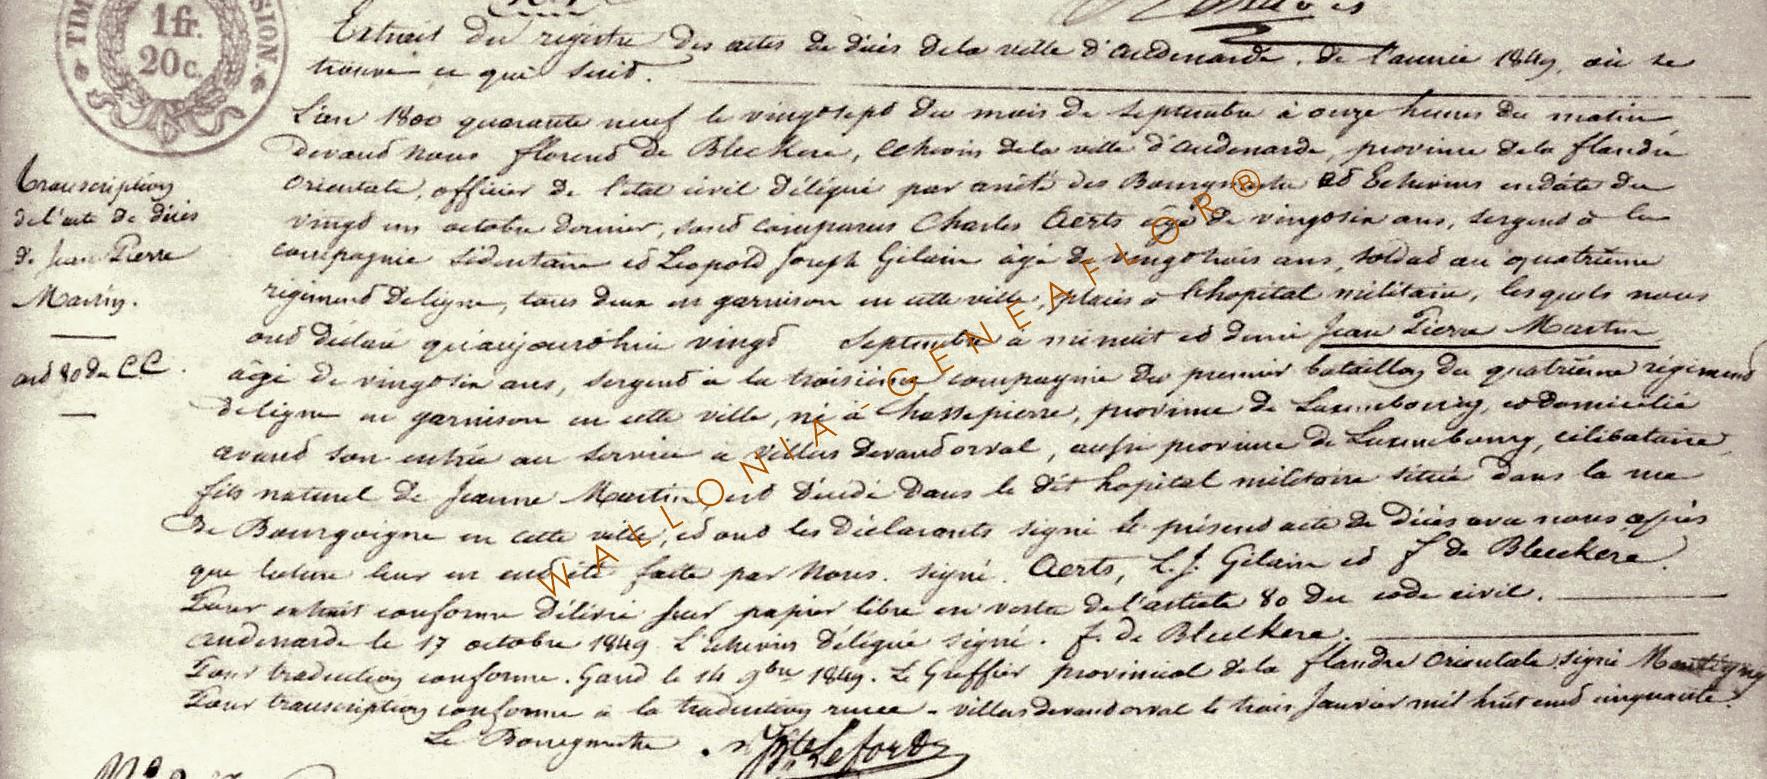 TIM
1fr.
20c.
SION.
Extrait du registre des actes de décès de la ville d'audenarde, de l'année 1849, où se
trouve ce qui suit.
L'an 1800 quarante neuf le vingtsept du mois de septembre à onze heures du matin,
devant nous florend de Bleckere, Echevin de la ville d'audenarde, province de la flandre
Orientale, officier de l'état civil délégué par arrêté des Bourgmestre et Echevins en date du
vingt un octobre dernier, sont comparus Charles Aerts agé de vingtsix ans, sergent à la
compagnie sédentaire et Léopold Joseph Gilain agé de vingttrois ans, soldat au quatrième
régiment de ligne, tous deux en garnison en cette ville, placés à l'hopital militaire, lesquels nous
ont déclaré qu'aujourd'hui vingt Septembre à minuit et demi Jean Pierre Martin
âgé de vingtsix ans, sergent à la troisième compagnie du premier bataillon du quatrième régiment
de ligne en garnison en cette ville, né à Chassepierre, province de Luxembourg, et domicilié
avant son entrée au service à Villers devant orval, aussi province de Luxembourg, célibataire,
fils naturel de Jeanne Martin est décédé dans le dit hopital militaire située dans la rue
de Bourgoigne en cette ville, et ont les déclarants signé le présent acte de décès avec nous, après
que lecture leur en eut été faite par nous. signé. Aerts, L. J. Gilain et f de Bleeckere.
Pour extrait conforme délivré sur papier libre en vertu de l'article 80 du code civil.
audenarde le 17 octobre 1849 L'échevin délégué signé. f. de Bleeckere.
Pour traduction conforme. Gand le 14 9bre 1849. Le Greffier provincial de la flandre Orientale signé Montigny
Pour transcription conforme à la traduction reçue - villers devant orval le trois Janvier mil huit cent cinquante.
Le Bourgmestre
Transcription
de l'acte de décès
de Jean Pierre
Martin.
art 80 du C.C.
WALLONIA-GENEAFLOR®